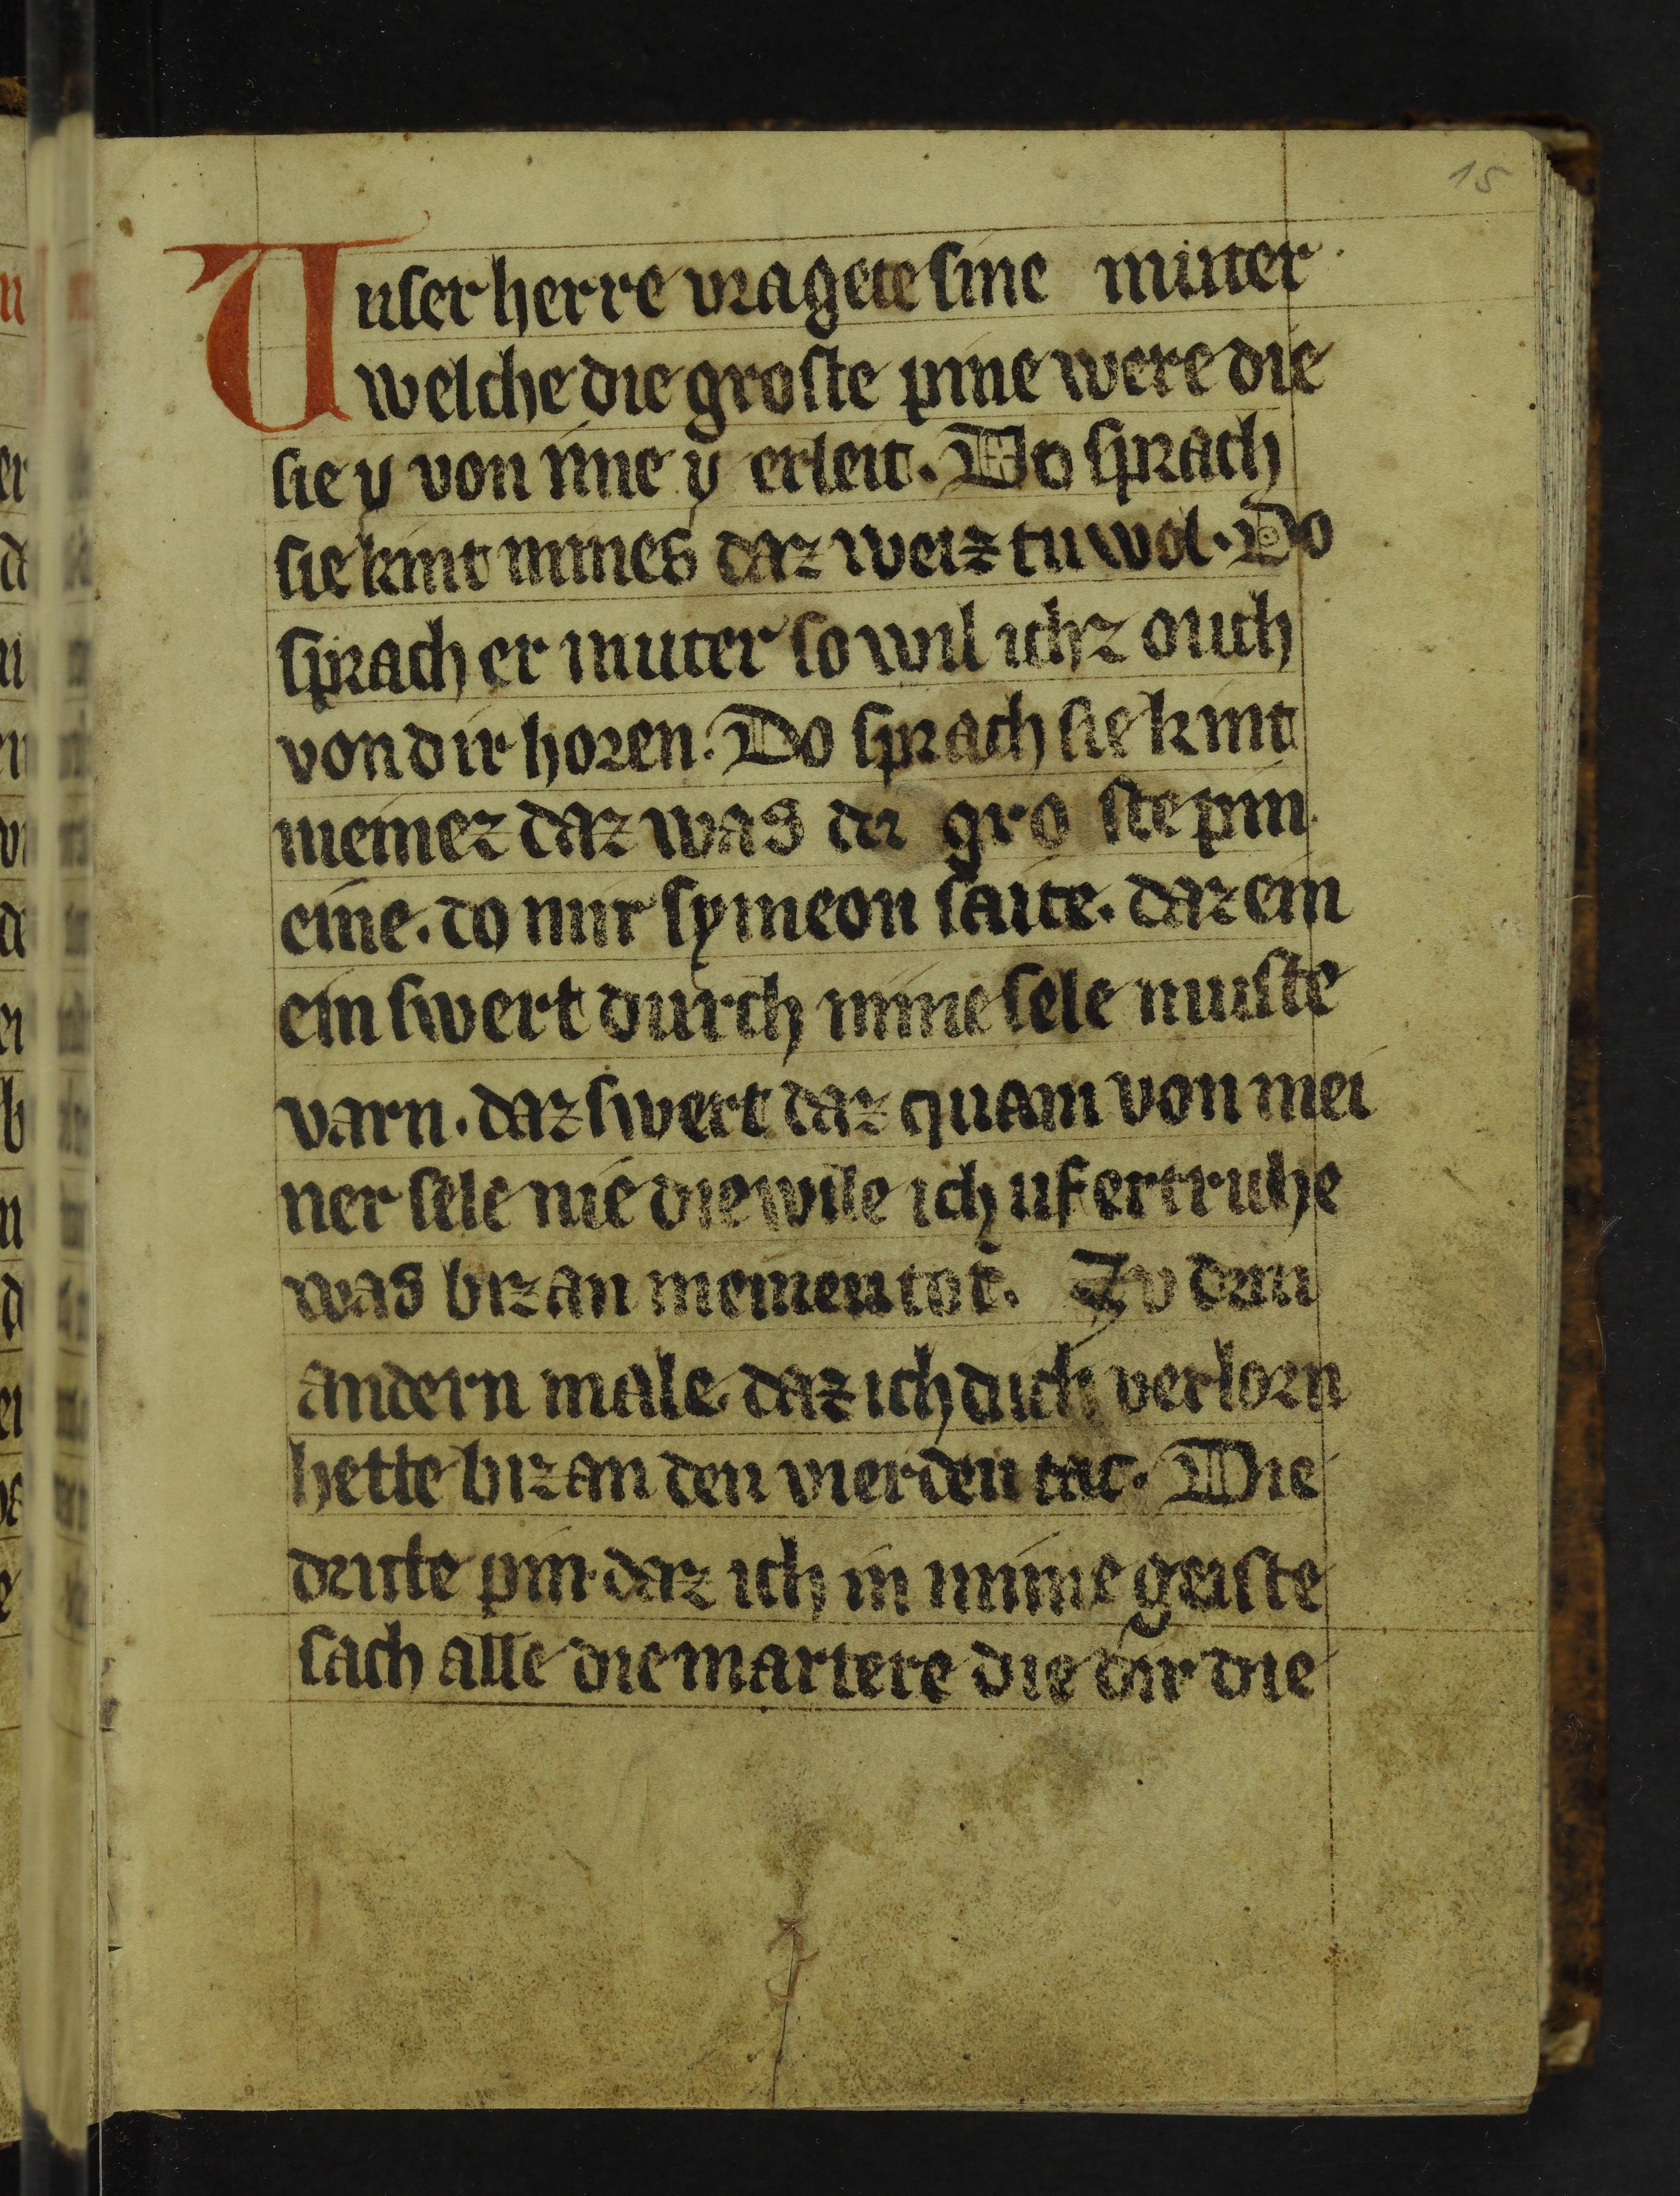 15
Unser herre vragete sine muter
welche die groste pine were die
sie y von ime y erleit. Do sprach
sie kint mines daz weiz tu wol. Do
sprach er muter so wil ichz ouch
von dir horen. Do sprach sie kint
meinez daz was di gro ste pin
eine. do mir symeon saite. daz ein
ein swert durch mine sele muste
varn. daz swert daz quam von mei
ner sele nie die wile ich uf ertruhe
was biz an meinen tod. Zv dem
andern male daz ich dich verlorn
hette biz an den vierden tac. Die
dritte pin daz ich in mime geiste
sach alle die martere die dir die